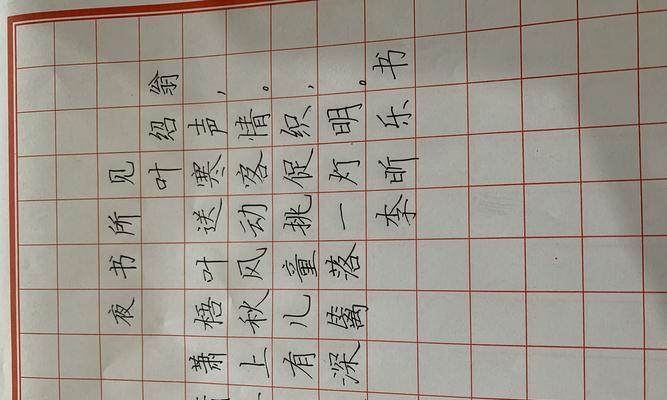 夜书所见
叶绍翁
萧梧叶送寒声，
上秋风动客情。
有儿童挑促织，
深篱落一灯明。
李昕乐书